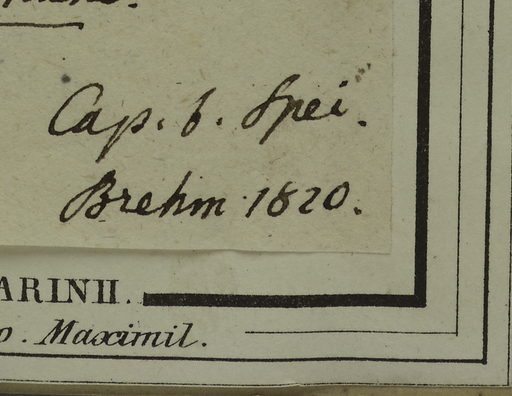 Cap. b. Spei.
Brehm 1820.
ARINII.
o. Maximil.